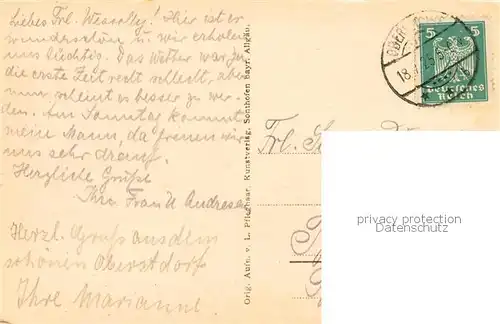 Liebes Frl. Wesselky! Hier ist es
wunderschön u. wir erholen
uns tüchtig. Das Wetter war ja
die erste Zeit recht schlecht, aber
nun scheint es besser zu wer-
den. Am Sonntag kommt
mein Mann, da freuen wir
uns sehr drauf.
Herzliche Grüße
Ihre Frau U. Andresen
Herzl. Gruß aus dem
schönen Oberstdorf
Ihre Marianne.
Orig. Aufn. v. L. Pfleghaar, Kunstverlag, Sonthofen Bayr. Allgäu.
Frl.
18
5 5
Deutsches
Reich
privacy protection
Datenschutz